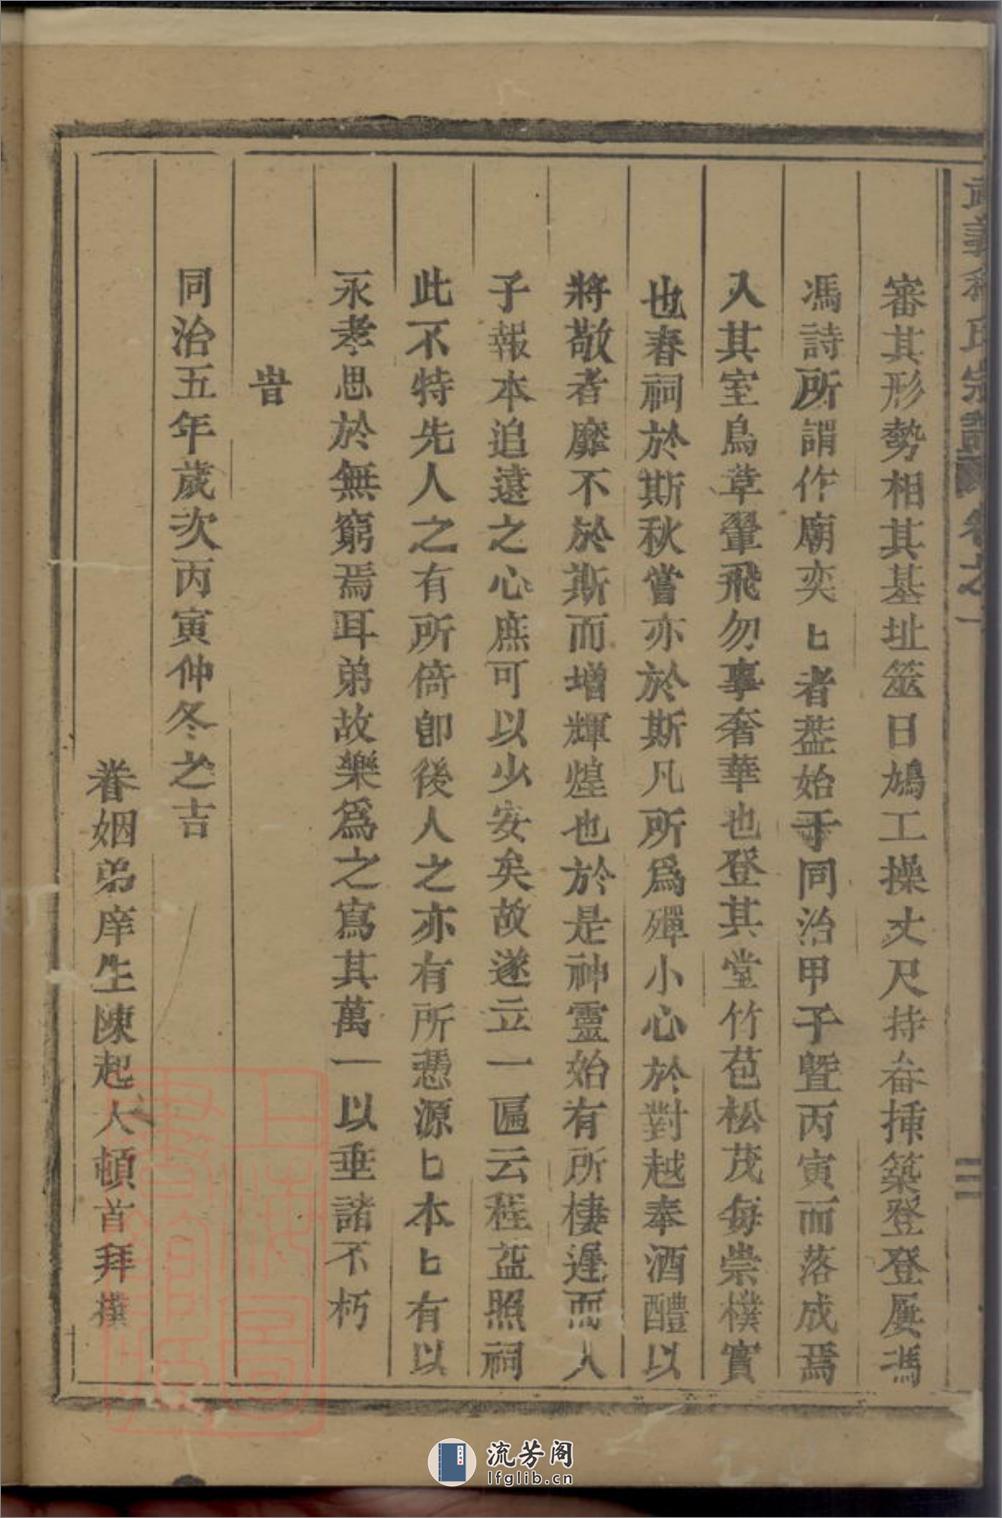 審其形勢相其基址筮日鳩工操丈尺持畚揷築登登屢馮
馮詩所謂作廟奕匕者葢始于同治甲子曁丙寅而落成焉
入其室鳥革翬飛勿事奢華也登其堂竹苞松茂每崇樸實
也春祠於斯秋嘗亦於斯凡所爲殫小心於對越奉酒醴以
將敬者靡不於斯而增輝煌也於是神靈始有所棲遲而人
子報本追遠之心庶可以少安矣故遂立一匾云程益照祠
此不特先人之有所倚卽後人之亦有所憑源匕本匕有以
永孝思於無窮焉耳弟故樂爲之寫其萬一以垂諸不朽
旹
同治五年歲次丙寅仲冬之吉
眷姻弟庠生陳起人頓首拜撰
武義程氏宗譜
卷之一
二
上海圖書館藏
流芳阁
lfglib.cn